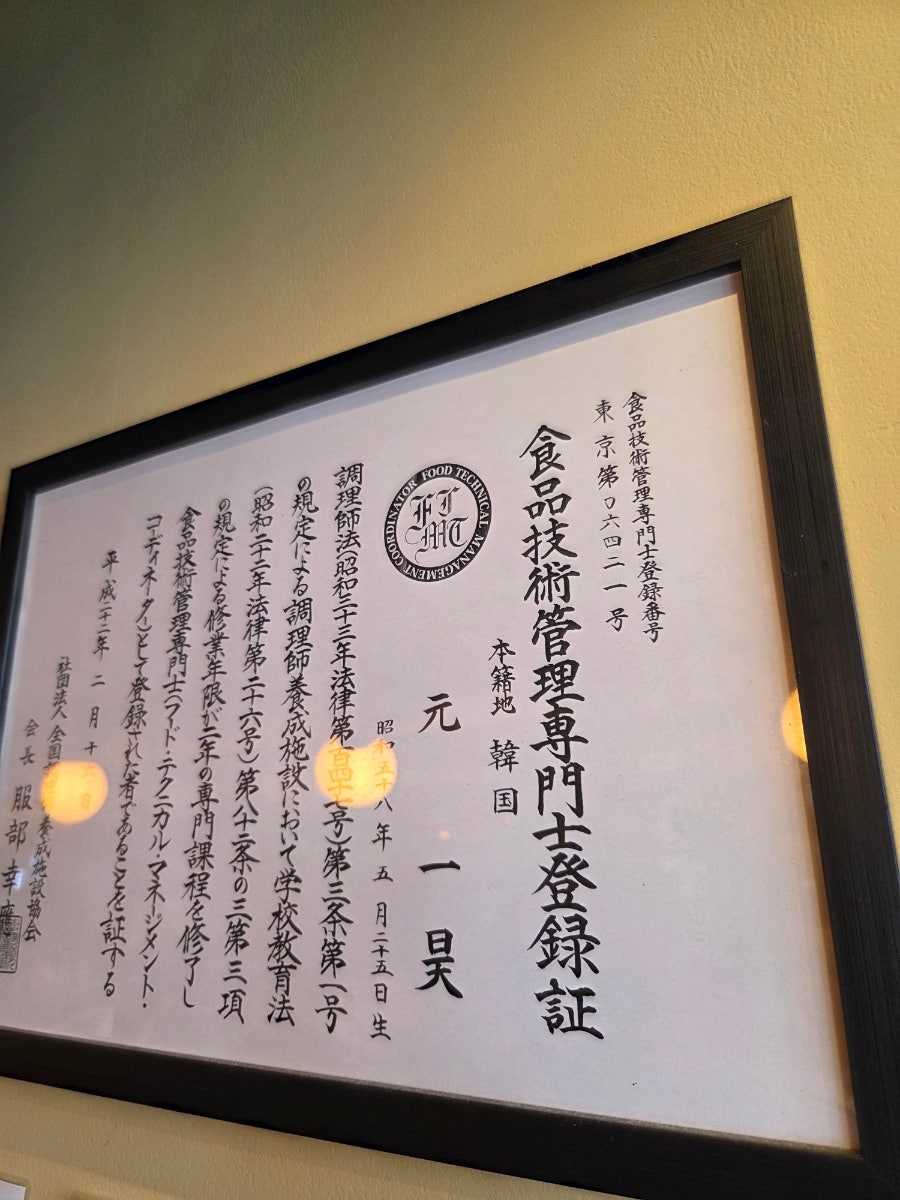 食品技術管理専門士登録番号
東京第0六四二一号
食品技術管理専門士登録証
本籍地 韓国
元 一昊
昭和五十八年五月二十五日生
FOOD TECHNICAL MANAGEMENT COORDINATOR
FTMT
調理師法(昭和三十三年法律第百四十七号)第三条第一号
の規定による調理師養成施設において学校教育法
(昭和二十二年法律第二十六号)第八十二条の三第三項
の規定による修業年限が二年の専門課程を修了し
食品技術管理専門士(フード・テクニカル・マネージメント・
コーディネーター)として登録された者であることを証する
平成二十二年 二月十六日
社団法人 全国 養成施設協会
会長 服部幸應